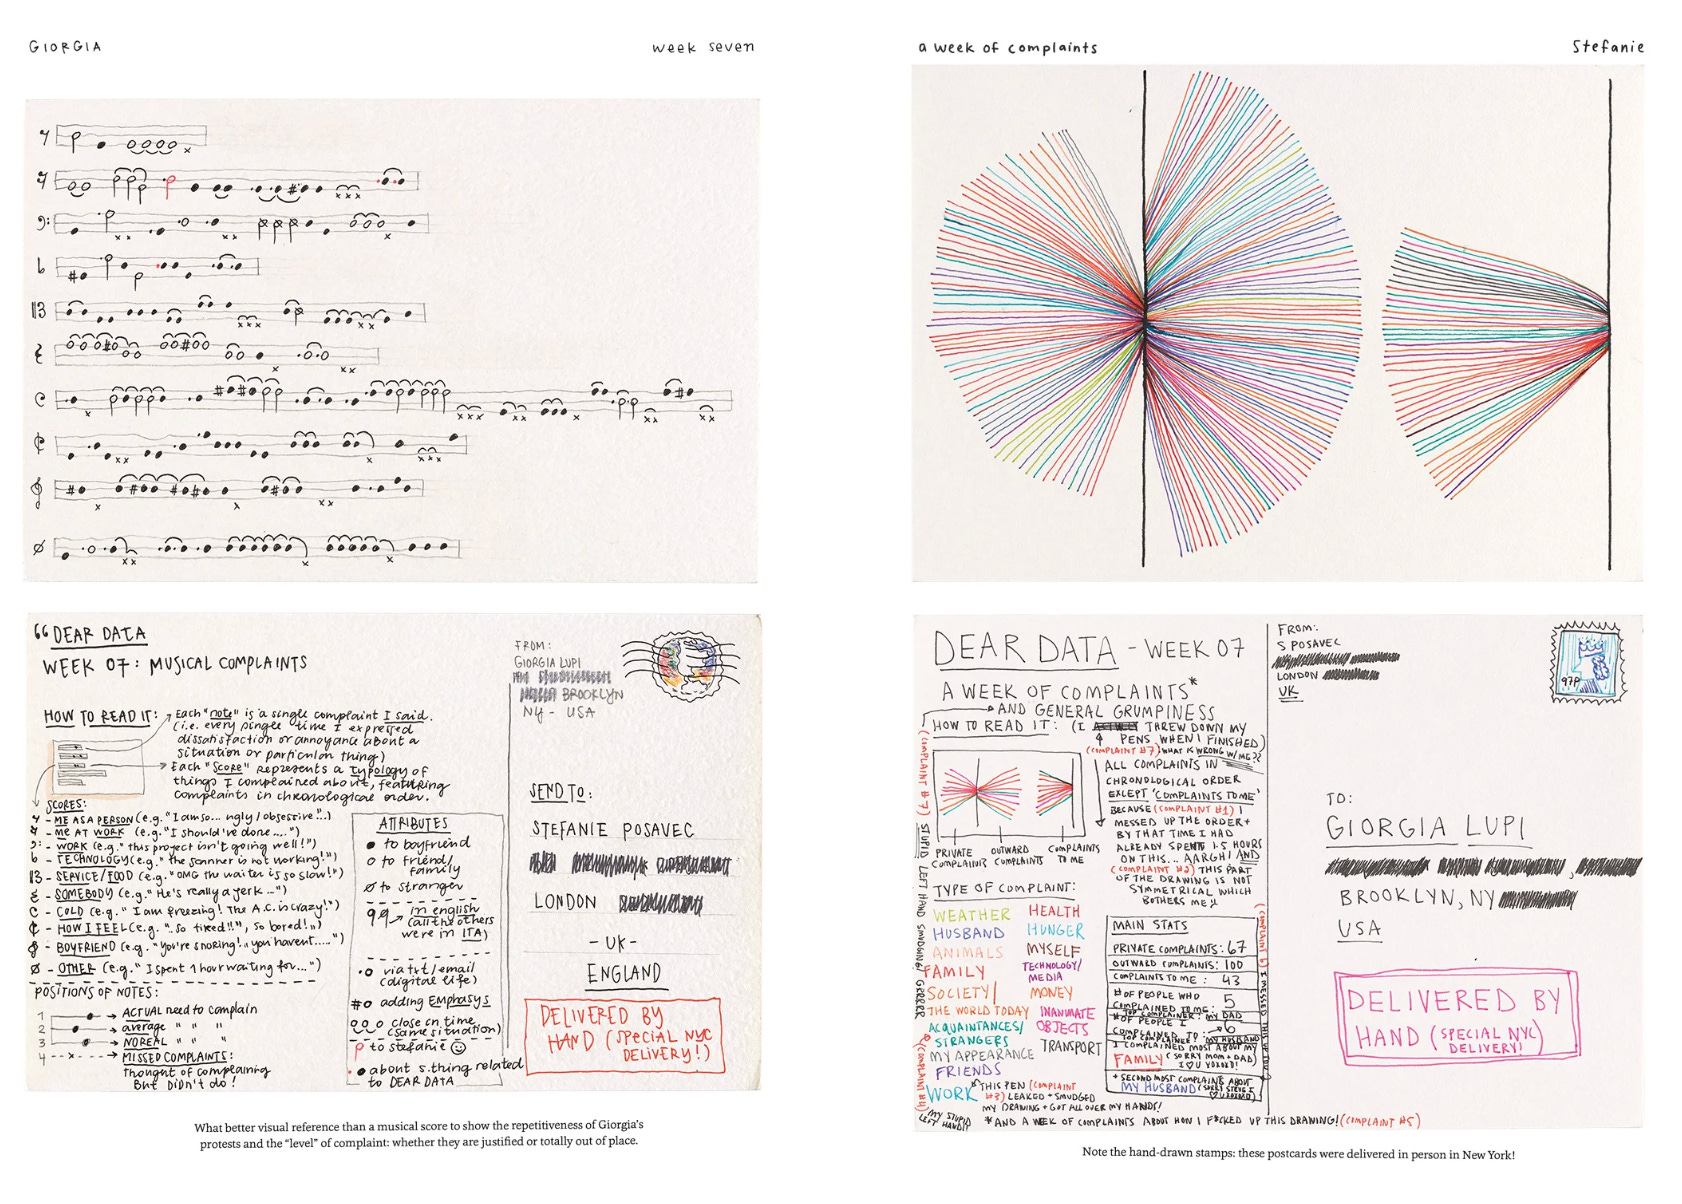 GIORGIA
week seven
a week of complaints
Stefanie
"DEAR DATA
WEEK 07: MUSICAL COMPLAINTS
HOW TO READ IT:
Each "note" is a single complaint I said.
(i.e. every single time I expressed
dissatisfaction or annoyance about a
situation or particular thing)
Each "Score" represents a typology of
things I complained about, featuring
complaints in chronological order.
SCORES:
- ME AS A PERSON (e.g. "I am so... ugly/obsessive!..)
- ME AT WORK (e.g. "I should've done ....")
- WORK (e.g. "this project isn't going well!")
- TECHNOLOGY (e.g. "the scanner is not working!")
- SERVICE/FOOD (e.g. "OMG the waiter is so slow!")
- SOMEBODY (e.g. "He's really a jerk...")
- COLD (e.g. "I am freezing! The A.C. is crazy!")
- HOW I FEEL (e.g. "..So tired!!", so bored!")
- BOYFRIEND (e.g. "You're snoring!, you haven't.....")
- OTHER (e.g. "I spent 1 hour waiting for...")
POSITIONS OF NOTES:
1 → ACTUAL need to complain
2 → average " " "
3 → NO REAL " " "
4 --x--→ MISSED COMPLAINTS:
Thought of complaining
But Didn't do!
ATTRIBUTES
to boyfriend
to friend/
family
to stranger
in english
(all the others
were in ITA)
via txt/email
(digital life)
#o adding EMPHASYS
close in time
(same situation)
to stefanie
about s.thing related
to DEAR DATA
FROM:
GIORGIA LUPI
BROOKLYN
NY - USA
SEND TO:
STEFANIE POSAVEC
LONDON
-UK-
ENGLAND
DELIVERED BY
HAND (SPECIAL NYC
DELIVERY!)
What better visual reference than a musical score to show the repetitiveness of Giorgia's
protests and the "level" of complaint: whether they are justified or totally out of place.
DEAR DATA - WEEK 07
A WEEK OF COMPLAINTS*
AND GENERAL GRUMPINESS
HOW TO READ IT: (I THREW DOWN MY
PENS WHEN I FINISHED)
(COMPLAINT #7) WHAT IS WRONG W/ME??
ALL COMPLAINTS IN
CHRONOLOGICAL ORDER
EXCEPT 'COMPLAINTS TO ME'
BECAUSE (COMPLAINT #1) I
MESSED UP THE ORDER +
BY THAT TIME I HAD
ALREADY SPENT 1.5 HOURS
ON THIS... AARGH! AND
(COMPLAINT #2) THIS PART
OF THE DRAWING IS NOT
SYMMETRICAL WHICH
BOTHERS ME!!
PRIVATE
COMPLAINTS
OUTWARD
COMPLAINTS
COMPLAINTS
TO ME
TYPE OF COMPLAINT:
WEATHER
HUSBAND
ANIMALS
FAMILY
SOCIETY/
THE WORLD TODAY
ACQUAINTANCES/
STRANGERS
MY APPEARANCE
FRIENDS
WORK
HEALTH
HUNGER
MYSELF
TECHNOLOGY/
MEDIA
MONEY
INANIMATE
OBJECTS
TRANSPORT
MAIN STATS
PRIVATE COMPLAINTS: 67
OUTWARD COMPLAINTS: 100
COMPLAINTS TO ME: 43
# OF PEOPLE WHO
COMPLAINED TO ME: 5
TOP COMPLAINER: MY DAD
# OF PEOPLE I
COMPLAINED TO: 6
TOP COMPLAINEE: MY HUSBAND
I COMPLAINED MOST ABOUT MY
FAMILY (SORRY MOM + DAD)
+ SECOND MOST COMPLAINTS ABOUT
MY HUSBAND
THIS PEN (COMPLAINT
#3) LEAKED + SMUDGED
MY DRAWING + GOT ALL OVER MY HANDS!
*AND A WEEK OF COMPLAINTS ABOUT HOW I F*CKED UP THIS DRAWING! (COMPLAINT #5)
STUPID LEFT HAND SMUDGING! GRRRRR
(COMPLAINT #4)
MY STUPID
LEFT HAND!!
FROM:
S POSAVEC
LONDON
UK
97P
TO:
GIORGIA LUPI
BROOKLYN, NY
USA
DELIVERED BY
HAND (SPECIAL NYC
DELIVERY!)
Note the hand-drawn stamps: these postcards were delivered in person in New York!